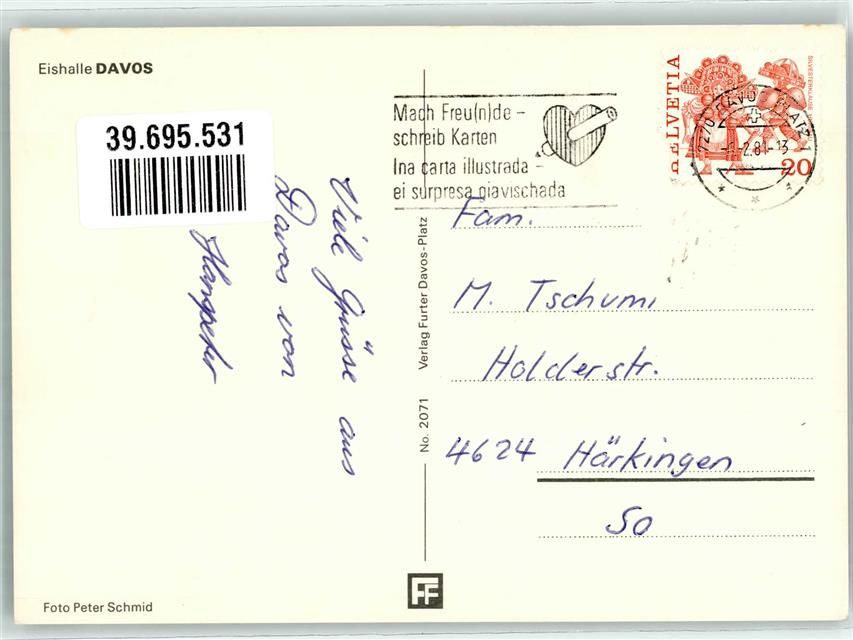 Eishalle DAVOS
39.695.531
Viele Grüsse aus
Davos von
Hanspeter
Foto Peter Schmid
No. 2071 Verlag Furter Davos-Platz
FF
Mach Freu(n)de –
schreib Karten
Ina carta illustrada –
ei surpresa giavischada
HELVETIA
20
7270 DAVOS PLATZ
Fam.
M. Tschumi
Holderstr.
4624 Härkingen
So